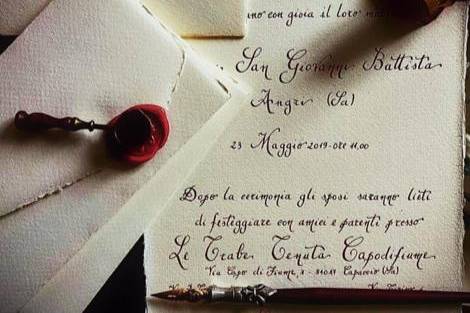 con gioia il loro
San Giovanni Battista
Angri (Sa)
23 Maggio 2019 - ore 11,00
Dopo la cerimonia gli sposi saranno lieti
di festeggiare con amici e parenti presso
Le Trabe Tenuta Capodifiume
Via Capo di Fiume, 1 - 84047 Capaccio (Sa)